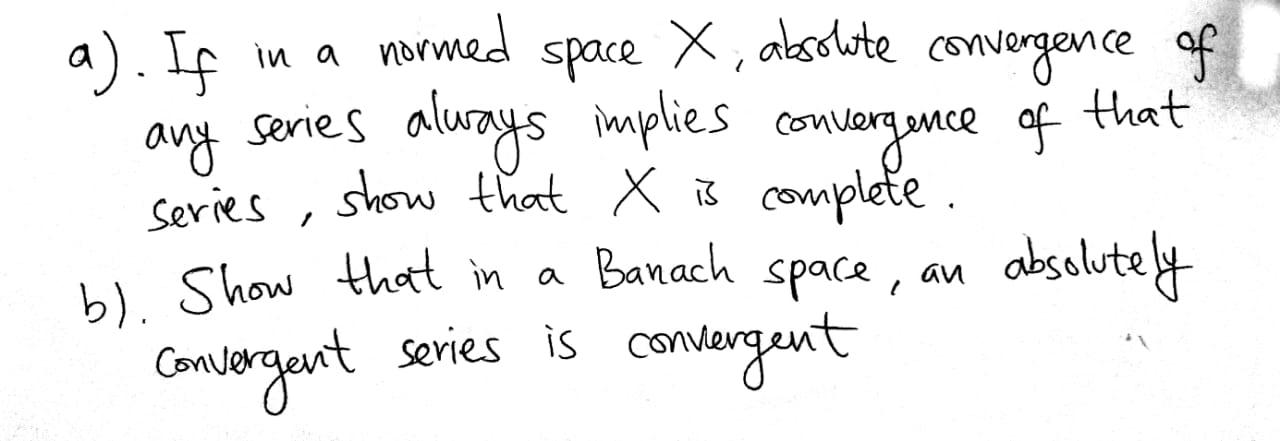 a). If in a normed space X, absolute convergence of
any series always implies convergence of that
series, show that X is complete.
b). Show that in a Banach space, an absolutely
convergent series is convergent